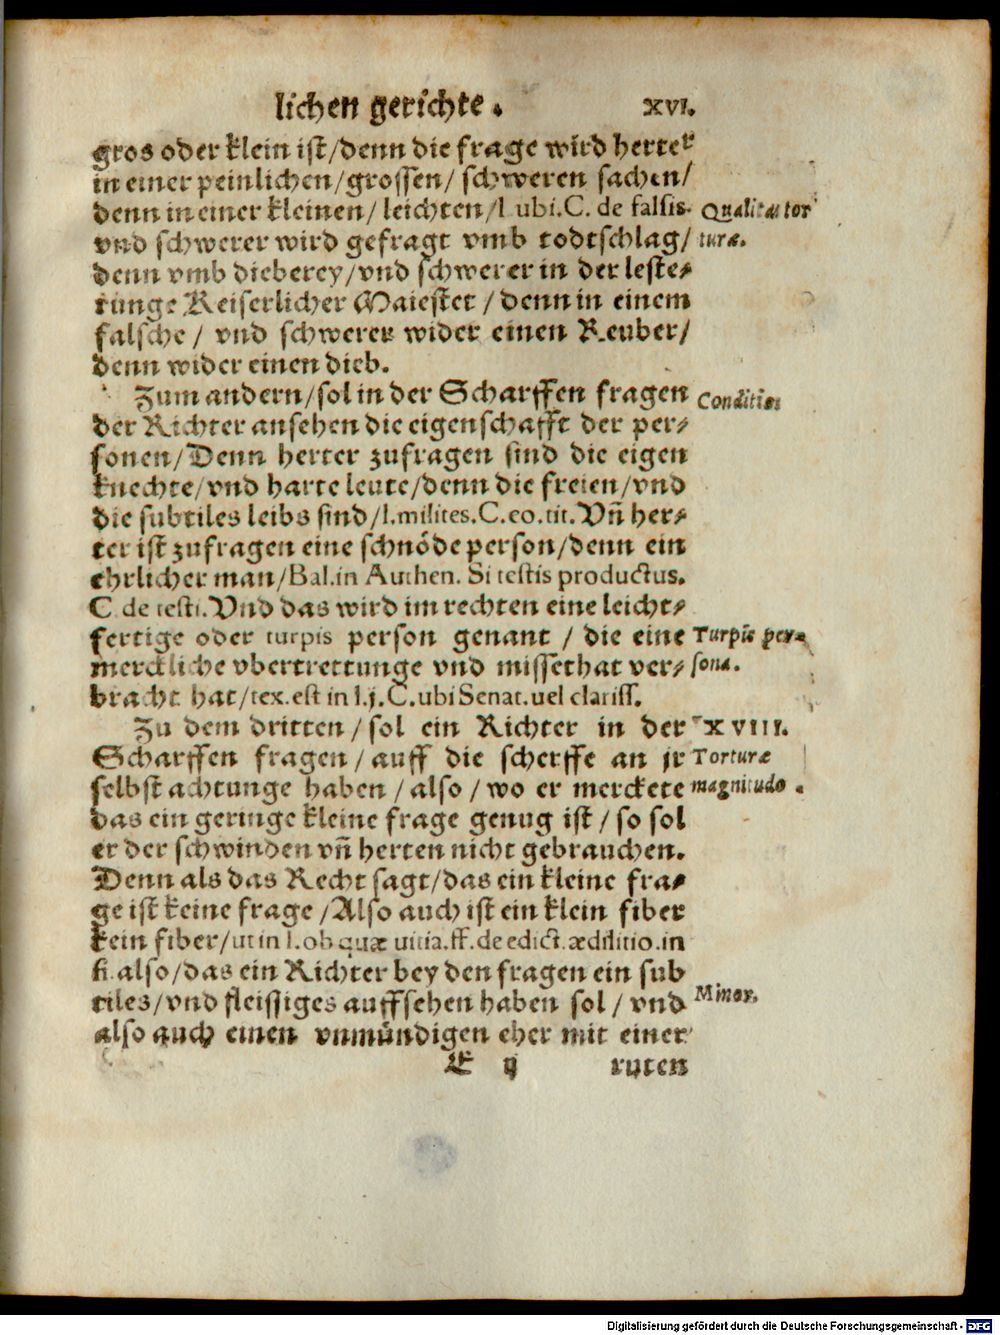 lichen gerichte. XVI.
gros oder klein ist/denn die frage wird herter
in einer peinlichen/grossen/ schweren sachen/
denn in einer kleinen/ leichten/l ubi.C. de falsis. Qualitas tor
vnd schwerer wird gefragt vmb todtschlag/ turæ.
denn vmb dieberey/vnd schwerer in der leste⸗
runge Keiserlicher Maiestet /denn in einem
falsche/ vnd schwerer wider einen Reuber/
denn wider einen dieb.
Zum andern/sol in der Scharffen fragen Conditio
der Richter ansehen die eigenschafft der per⸗
sonen/Denn herter zufragen sind die eigen
knechte/vnd harte leute/denn die freien/vnd
die subtiles leibs sind/l.milites.C.eo.tit.Vñ her⸗
ter ist zufragen eine schnöde person/denn ein
ehrlicher man/Bal.in Authen. Si testis productus.
C de testi.Vnd das wird im rechten eine leicht⸗
fertige oder turpis person genant / die eine Turpis per⸗
merckliche vbertrettunge vnd missethat ver⸗ sona.
bracht hat/tex.est in l.j.C.ubi Senat.uel clariss.
Zu dem dritten/sol ein Richter in der XVIII.
Scharffen fragen/auff die scherffe an jr Torturæ
selbst achtunge haben /also/wo er merckete magnitudo.
das ein geringe kleine frage genug ist/so sol
er der schwinden vñ herten nicht gebrauchen.
Denn als das Recht sagt/das ein kleine fra⸗
ge ist keine frage /Also auch ist ein klein fiber
kein fiber/ut in l.ob quæ uitia.ff.de edict.ædilitio.in
fi.also/das ein Richter bey den fragen ein sub
tiles/vnd fleissiges auffsehen haben sol/vnd Minor.
also auch einen vnmündigen eher mit einer
E ij ruten
Digitalisierung gefördert durch die Deutsche Forschungsgemeinschaft - DFG